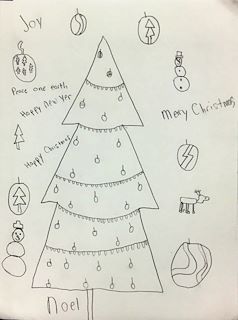 Joy
Peace one earth
Happy New Year
Merry Christmas
Happy Christmas
Noel